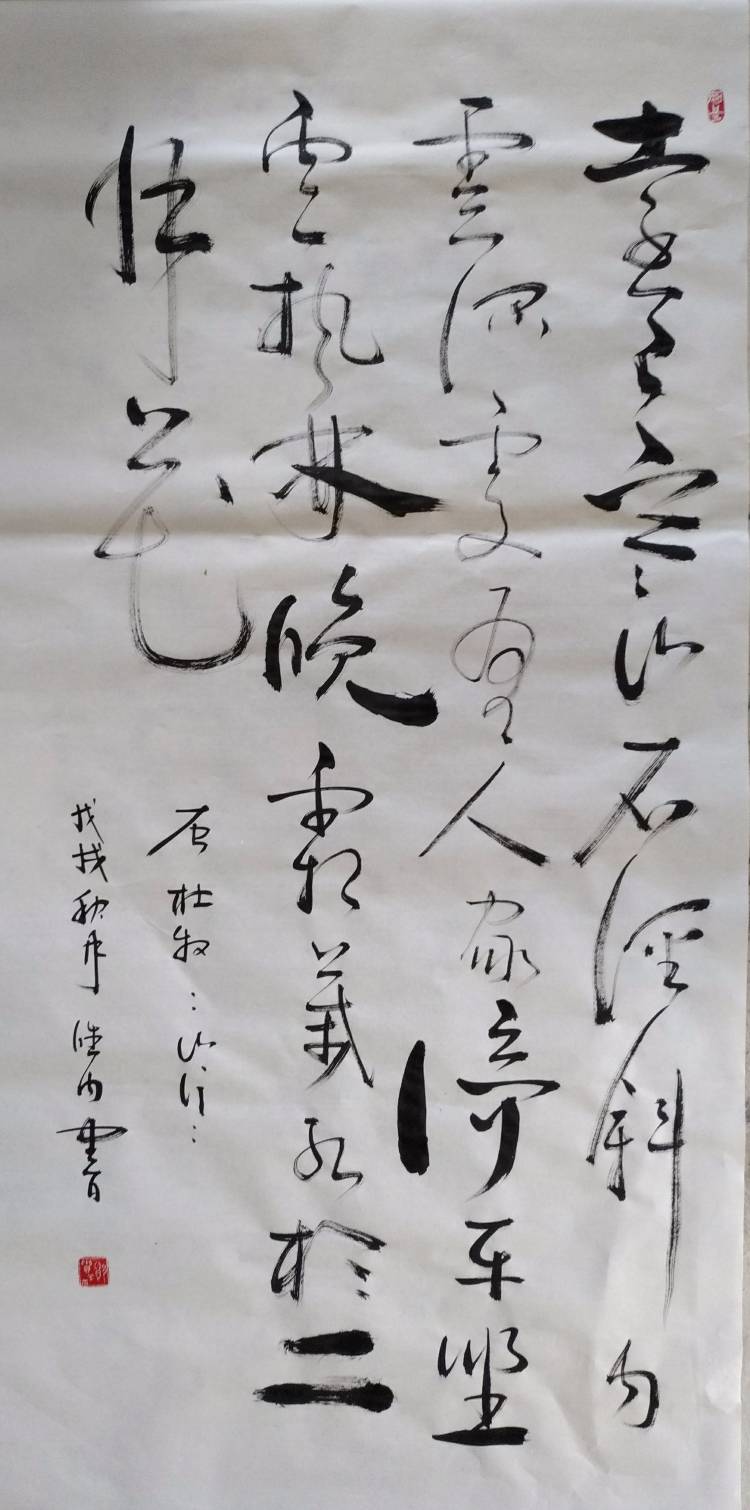 遠上寒山石徑斜白
雲深處有人家停車坐
愛楓林晚霜葉紅於二
月花
右杜牧：山行：
戊戌秋月書